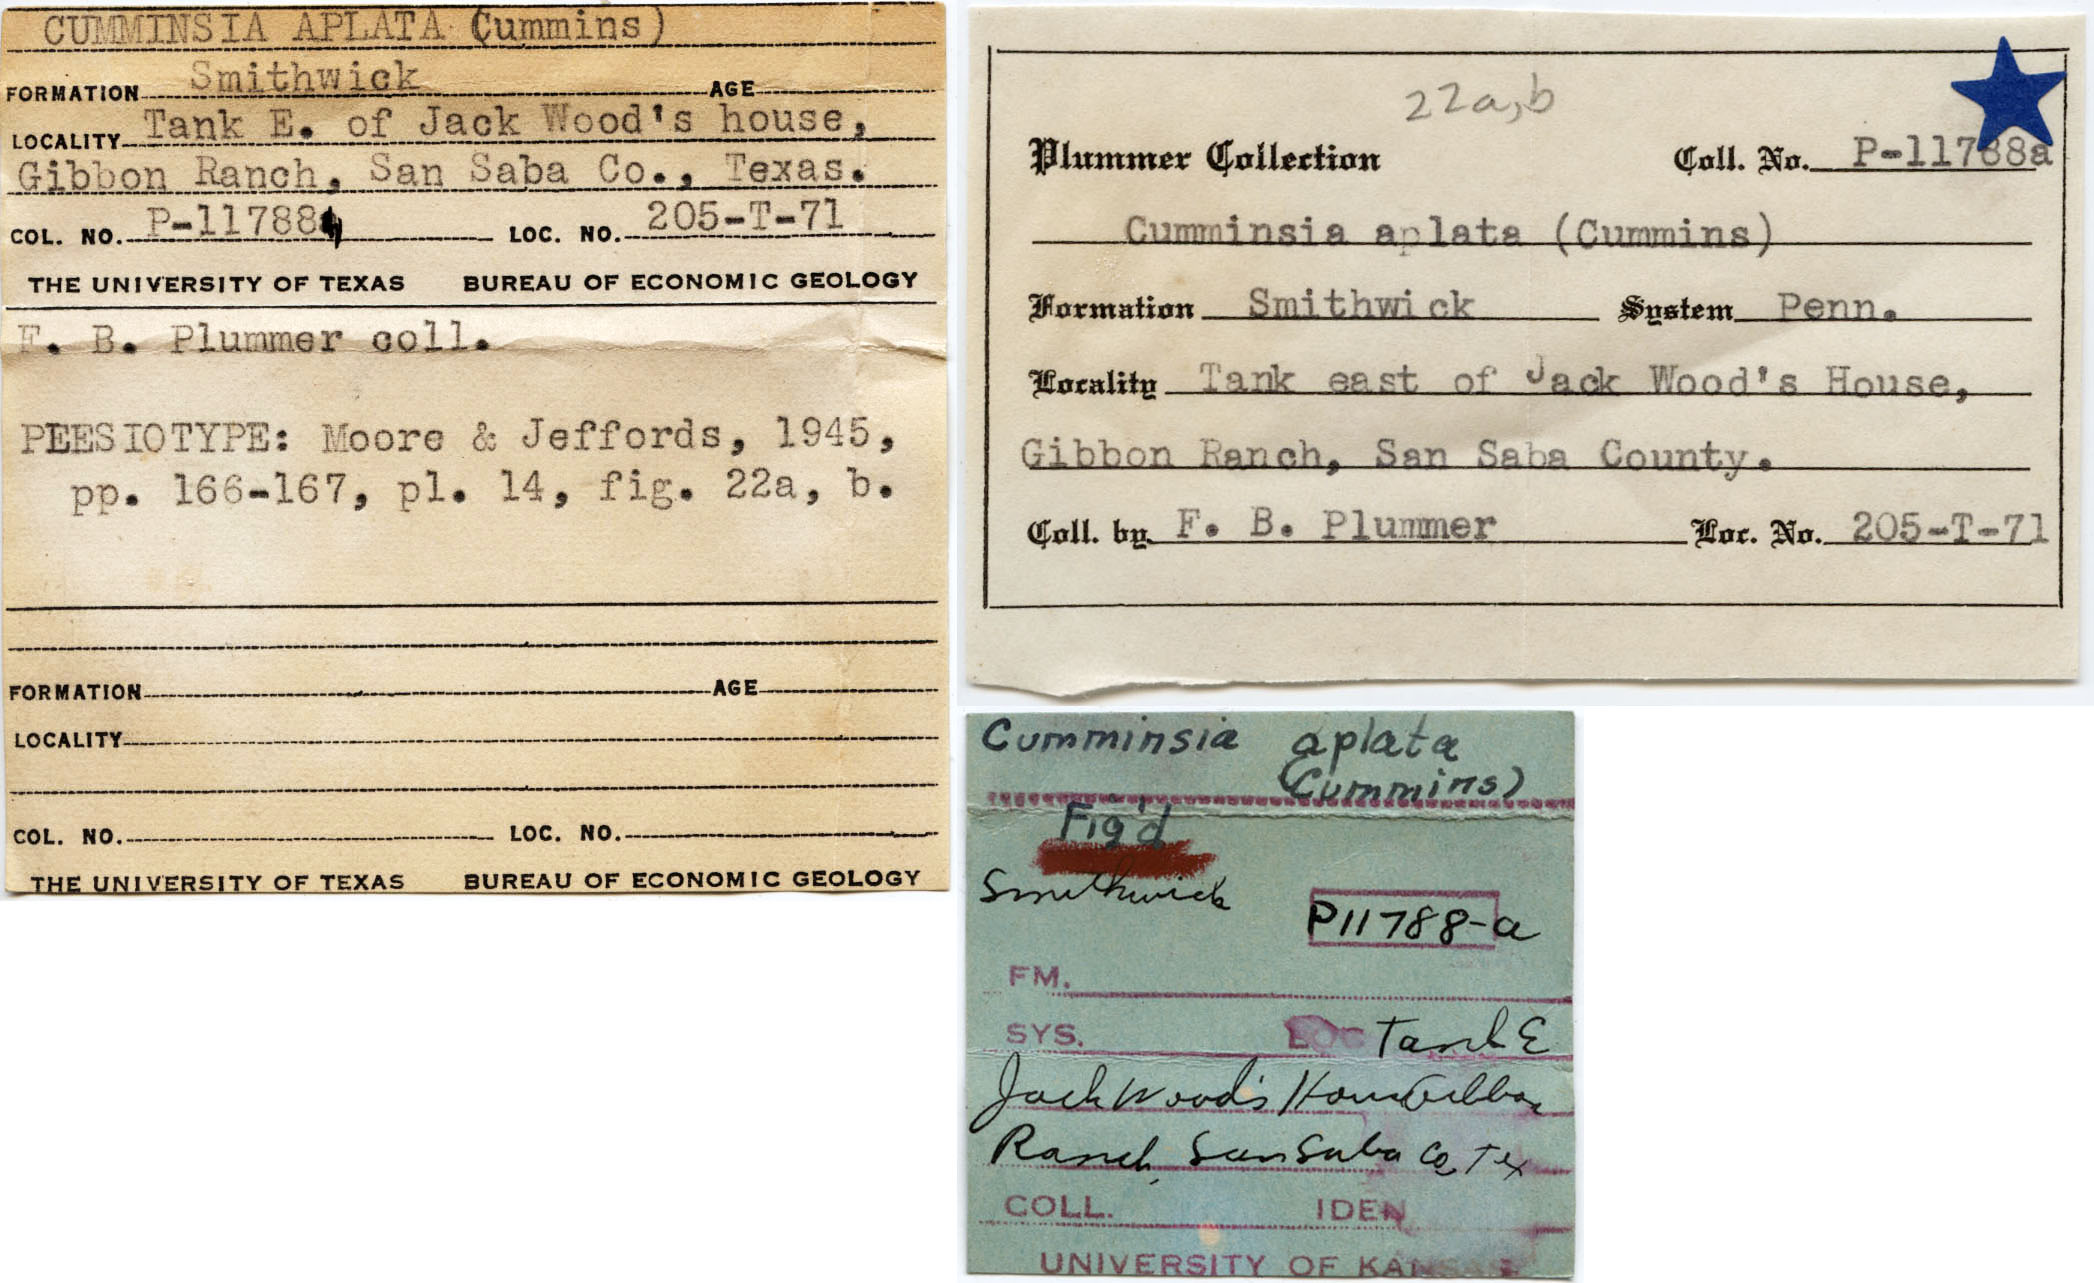 CUMMINSIA APLATA (Cummins)
FORMATION Smithwick AGE
LOCALITY Tank E. of Jack Wood's house,
Gibbon Ranch, San Saba Co., Texas.
COL. NO. P-11788 LOC. NO. 205-T-71
THE UNIVERSITY OF TEXAS BUREAU OF ECONOMIC GEOLOGY
F. B. Plummer coll.
PEESIOTYPE: Moore & Jeffords, 1945,
pp. 166-167, pl. 14, fig. 22a, b.
FORMATION AGE
LOCALITY
COL. NO. LOC. NO.
THE UNIVERSITY OF TEXAS BUREAU OF ECONOMIC GEOLOGY
22a,b
Plummer Collection Coll. No. P-11788a
Cumminsia aplata (Cummins)
Formation Smithwick System Penn.
Locality Tank east of Jack Wood's House,
Gibbon Ranch, San Saba County.
Coll. by F. B. Plummer Loc. No. 205-T-71
Cumminsia aplata
(Cummins)
Fig'd
Smithwick
P11788-a
FM.
SYS. LOC Tank E
Jack Wood's House Gibbon
Ranch, San Saba Co, Tex
COLL. IDEN
UNIVERSITY OF KANSAS